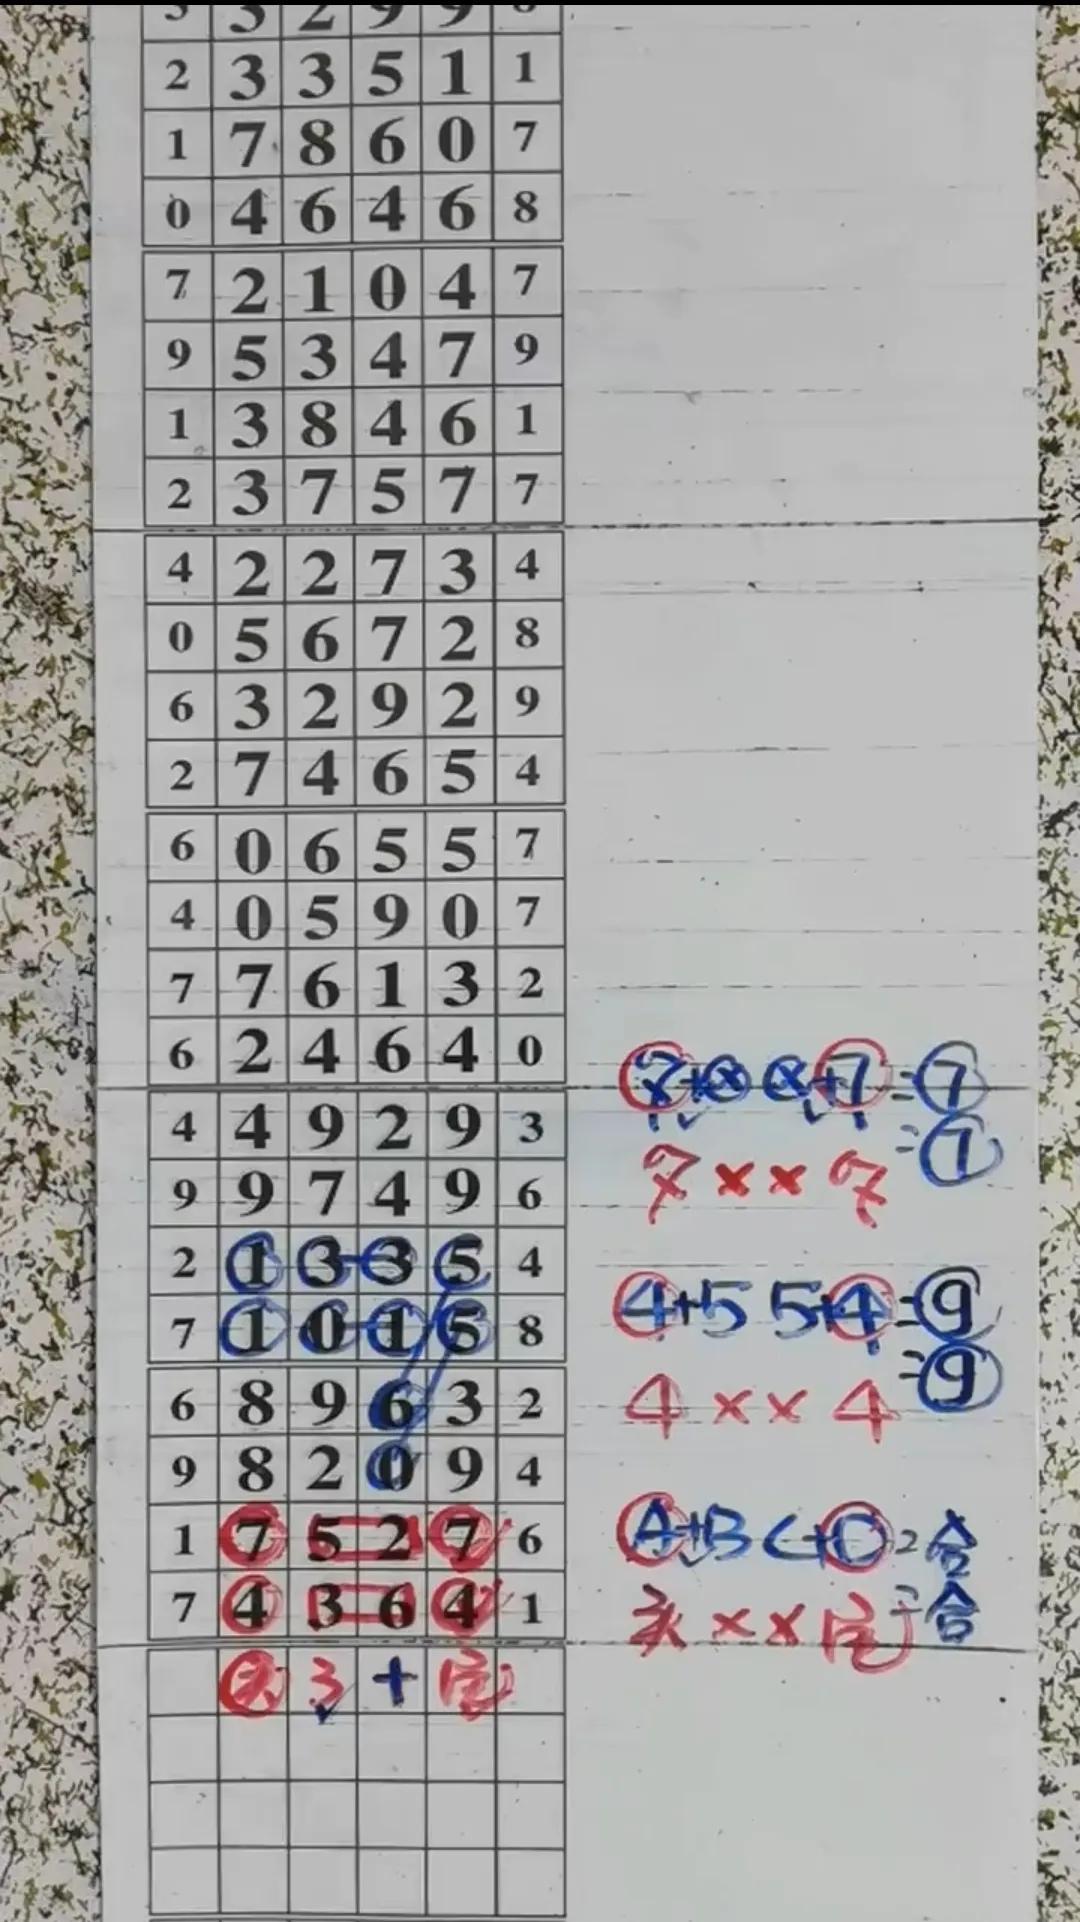 2 3 3 5 1 1
1 7 8 6 0 7
0 4 6 4 6 8
7 2 1 0 4 7
9 5 3 4 7 9
1 3 8 4 6 1
2 3 7 5 7 7
4 2 2 7 3 4
0 5 6 7 2 8
6 3 2 9 2 9
2 7 4 6 5 4
6 0 6 5 5 7
4 0 5 9 0 7
7 7 6 1 3 2
6 2 4 6 4 0
4 4 9 2 9 3
9 9 7 4 9 6
2 1 3 3 5 4
7 1 0 1 5 8
6 8 9 6 3 2
9 8 2 0 9 4
1 7 5 2 7 6
7 4 3 6 4 1
3 +
=7
7 × × 7
4+5 5+4=9
=9
4 × × 4
A+B C+D=合
头 × × 尾=合